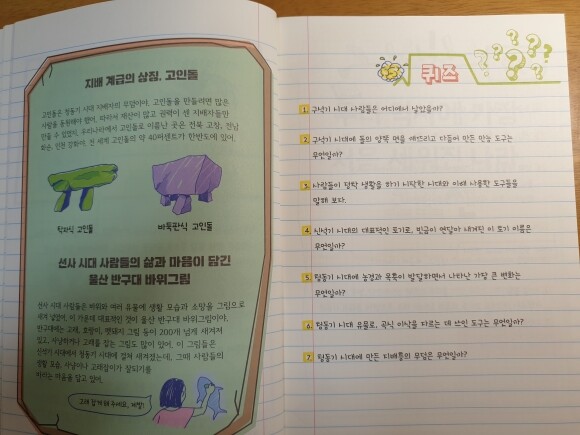 지배 계급의 상징, 고인돌
고인돌은 청동기 시대 지배자의 무덤이야. 고인돌을 만들려면 많은
사람을 동원해야 했어. 따라서 재산이 많고 권력이 센 지배자들만
만들 수 있었지. 우리나라에서 고인돌로 이름난 곳은 전북 고창, 전남
화순, 인천 강화야. 전 세계 고인돌의 약 40퍼센트가 한반도에 있어.
탁자식 고인돌
바둑판식 고인돌
선사 시대 사람들의 삶과 마음이 담긴
울산 반구대 바위그림
선사 시대 사람들은 바위와 여러 유물에 생활 모습과 소망을 그림으로
새겨 넣었어. 이 가운데 대표적인 것이 울산 반구대 바위그림이야.
반구대에는 고래, 호랑이, 멧돼지 그림 등이 200개 넘게 새겨져
있고, 사냥하거나 고래를 잡는 그림도 많이 있어. 이 그림들은
신석기 시대에서 청동기 시대에 걸쳐 새겨졌는데, 그때 사람들의
생활 모습, 사냥이나 고래잡이가 잘되기를
바라는 마음을 담고 있어.
고래 잡게 해 주세요, 제발!
퀴즈
1. 구석기 시대 사람들은 어디에서 살았을까?
2. 구석기 시대에 돌의 양쪽 면을 깨뜨리고 다듬어 만든 만능 도구는
무엇일까?
3. 사람들이 정착 생활을 하기 시작한 시대와 이때 사용한 도구들을
말해 보자.
4. 신석기 시대의 대표적인 토기로, 빗금이 연달아 새겨진 이 토기 이름은
무엇일까?
5. 청동기 시대에 농경과 목축이 발달하면서 나타난 가장 큰 변화는
무엇일까?
6. 청동기 시대 유물로, 곡식 이삭을 따르는 데 쓰인 도구는 무엇일까?
7. 청동기 시대에 만든 지배층의 무덤은 무엇일까?